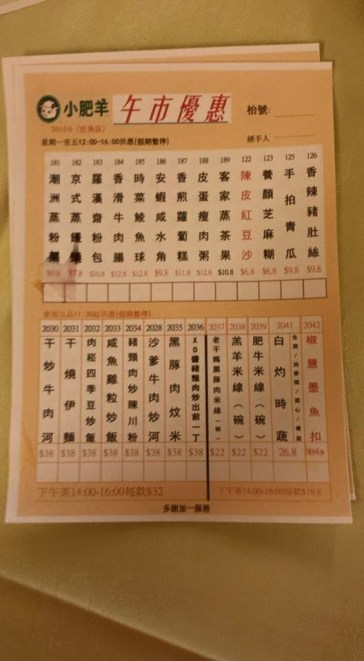 小肥羊 午市優惠 枱號:
星期一至五12:00-16:00供應(假期暫停) 經手人
181 182 183 184 185 186 187 188 189 122 123 125 126
潮州蒸粉
京式蒸
羅漢齋粉包
香滑牛肉腸
時菜鯪魚球
安蝦魚水角
香煎蘿蔔糕
皮蛋瘦肉粥
客家擂茶
陳皮紅豆沙
養顏芝麻糊
手拍青瓜
香辣豬肚絲
$9.8 $7.8 $10.8 $12.8 $12.8 $9.8 $9.8 $10.8 $6.8 $6.8 $9.8 $9.8
2030 2031 2032 2033 2034 2028 2035 2036 2037 2038 2039 2041 2042
干炒牛肉河
干燒伊麵
肉崧四季豆炒飯
咸魚雞粒炒飯
豬頸肉炒陳川粉
沙爹牛肉炒河
黑豚肉炆米
XO醬豬頸肉炒出前一丁
老干媽黑豚肉米線(碗)
羔羊米線(碗)
肥牛米線(碗)
白灼時蔬
椒鹽墨魚扣
$38 $38 $38 $38 $38 $38 $38 $38 $22 $22 $22 26.8
下午茶14:00-16:00每款$32 下午茶14:00-16:00每款$19.8
多謝加一服務